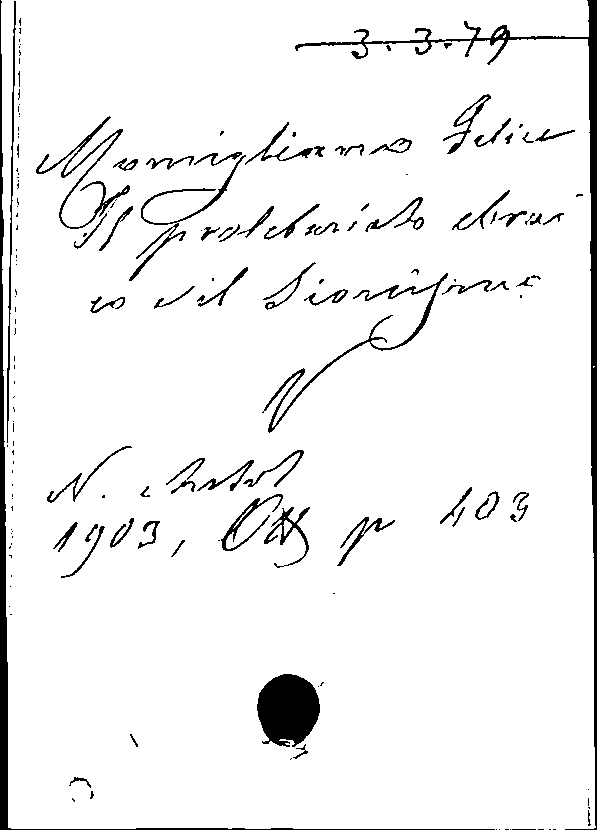 3.3.79
Momigliano Felice
Il proletariato ebrai
co e il Sionismo
N. Antol
1903, p 403